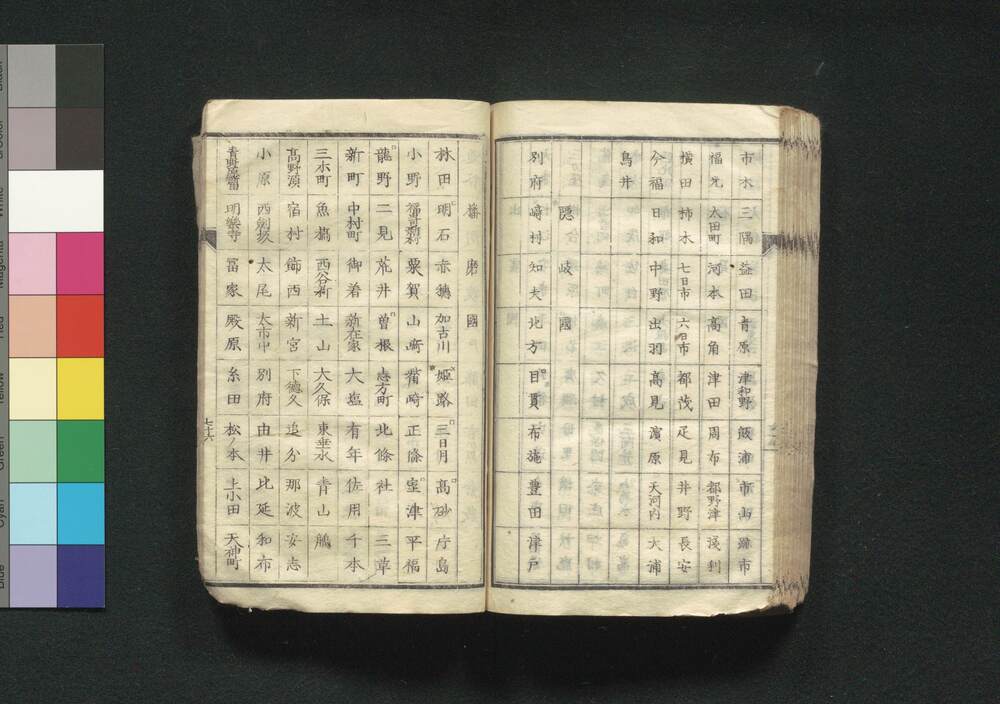 市木 三隅 益田 青原 津和野 飯浦 市山 跡市
福光 太田町 河本 高角 津田 周布 都野津 浅利
横田 柿木 七日市 六日市 都茂 疋見 井野 長安
今福 日和 中野 出羽 高見 濱原 天河内 大浦
鳥井
隠岐國
別府 﨑村 知夫 北方 目貫 布施 豊田 津戸
播磨國
林田 明石 赤穂 加古川 姫路 三日月 高砂 庁島
小野 粟賀 山﨑 正條 室津 平福
龍野 二見 荒井 曽根 志方町 北條 社 三草
新町 中村町 御着 新在家 大塩 有年 佐用 千本
三木町 魚橋 西谷新 土山 大久保 東垂水 青山 鵤
高野濱 宿村 飾西 新宮 下徳久 追分 那波 安志
小原 西劔坂 太尾 太市中 別府 由井 比延 和布
明樂寺 冨家 殿原 糸田 松ノ本 上小田 天神町
七十六